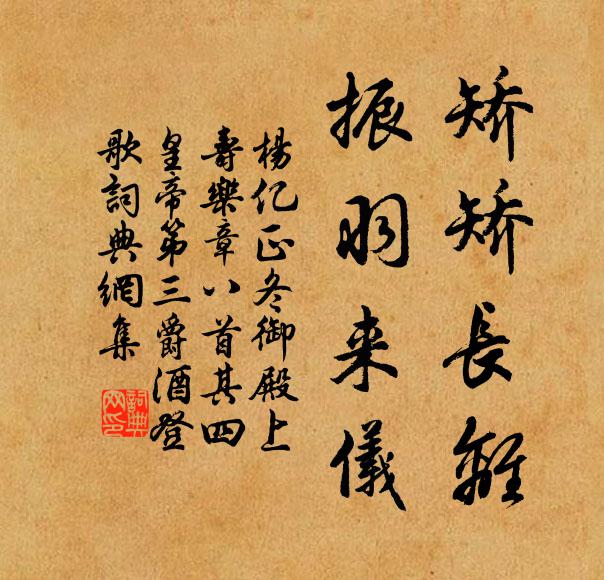 矯矯長離
振羽来儀
楊亿正冬御殿上
壽樂章八首其四
皇帝第三爵酒登
歌詞典網集
詞典
网印